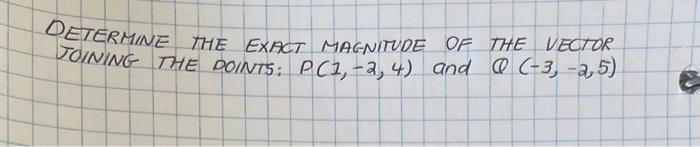 DETERMINE THE EXACT MAGNITUDE OF THE VECTOR
JOINING THE POINTS: P(1,-2,4) and Q (-3,-2,5)